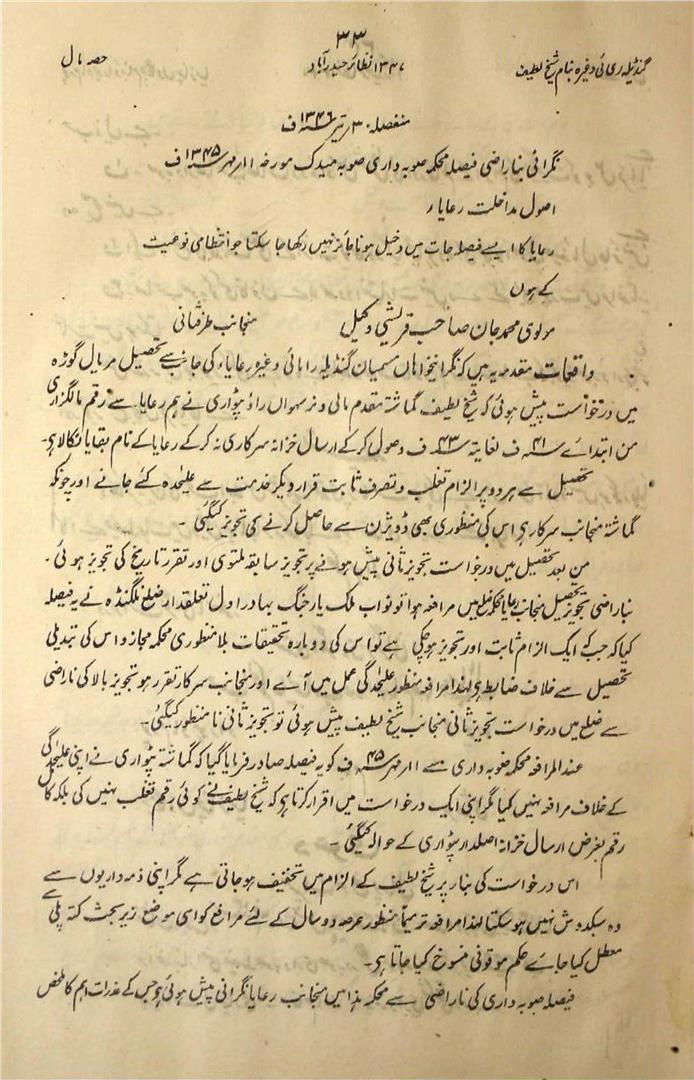 ۳۳
گنڈیلہ ری ئی وغیرہ بنام شیخ لطیف ۱۳۴۷ نظائر حیدرآباد حصہ مال
منفصلہ ۳۰ تیر ۱۳۴۶ ف
نگرانی بنا راضی فیصلہ محکمہ صوبہ داری صوبہ میدک مورخہ ۱۱ مہر ۱۳۴۵ ف
اصول مداخلت رعایاء
رعایا کا ایسے فیصلہ جات میں دخیل ہونا جائز نہیں رکھا جا سکتا جو انتظامی نوعیت
کے ہوں
مولوی محمد جان صاحب قریشی وکیل منجانب طرفثانی
واقعات مقدمہ یہ ہیں کہ نگرانیخواہاں مسمیان گنڈیلہ راہائی وغیرہ رعایاء کی جانب سے تحصیل مریال گوڑہ
میں درخواست پیش ہوئی کہ شیخ لطیف گماشتہ مقدم مالی و نرسہواں راؤ پٹواری نے ہم رعایا سے رقم مالگزاری
من ابتدائے ۴۱ ف لغایتہ ۴۳ ف وصول کر کے ارسال خزانہ سرکاری نہ کر کے رعایا کے نام بقایا نکالا ہے۔
تحصیل سے ہر دو پر الزام تغلب و تصرف ثابت قرار دیکر خدمت سے علیحدہ کئے جانے اور چونکہ
گماشتہ منجانب سرکار ہے اس کی منظوری بھی ڈویژن سے حاصل کرنے کی تجویز کیگئی۔
من بعد تحصیل میں درخواست تجویز ثانی پیش ہونے پر تجویز سابقہ ملتوی اور تقرر تاریخ کی تجویز ہوئی۔
بناراضی تجویز تحصیل منجانب رعایا محکمہ ضلع میں مرافعہ ہوا تو نواب ملک یار جنگ بہادر اول تعلقدار ضلع نلگنڈہ نے یہ فیصلہ
کیا کہ جب کہ ایک الزام ثابت اور تجویز ہو چکی ہے تو اس کی دوبارہ تحقیقات بلا منظوری محکمہ مجاز و اس کی تبدیلی
تحصیل سے خلاف ضابطہ ہے لہذا مرافعہ منظور علیحدگی عمل میں آئے اور منجانب سرکار تقرر ہو تجویز بالا کی ناراضی
سے ضلع میں درخواست تجویز ثانی منجانب شیخ لطیف پیش ہوئی تو تجویز ثانی نا منظور کیگئی۔
عند المرافعہ محکمہ صوبہ داری سے ۱۱ مہر ۴۵ ف کو یہ فیصلہ صادر فرمایا گیا کہ گماشتہ پٹواری نے اپنی علیحدگی
کے خلاف مرافعہ نہیں کیا مگر اپنی ایک درخواست میں اقرار کرتا ہے کہ شیخ لطیف نے کوئی رقم تغلب نہیں کی بلکہ کل
رقم بغرض ارسال خزانہ اصلدار پٹواری کے حوالہ کیگئی۔
اس درخواست کی بنا پر شیخ لطیف کے الزام میں تخفیف ہو جاتی ہے مگر اپنی ذمہ داریوں سے
وہ سبکدوش نہیں ہو سکتا لہذا مرافعہ ترمیماً منظور عرصہ دو سال کے لئے مرافع کو اسی موضع زیر بحث کتہ پلی سے
معطل کیا جائے حکم موقوفی منسوخ کیا جاتا ہے۔
فیصلہ صوبہ داری کی ناراضی سے محکمہ ہذا میں منجانب رعایا نگرانی پیش ہوئی ہے جس کے عذرات اہم کا ملخص